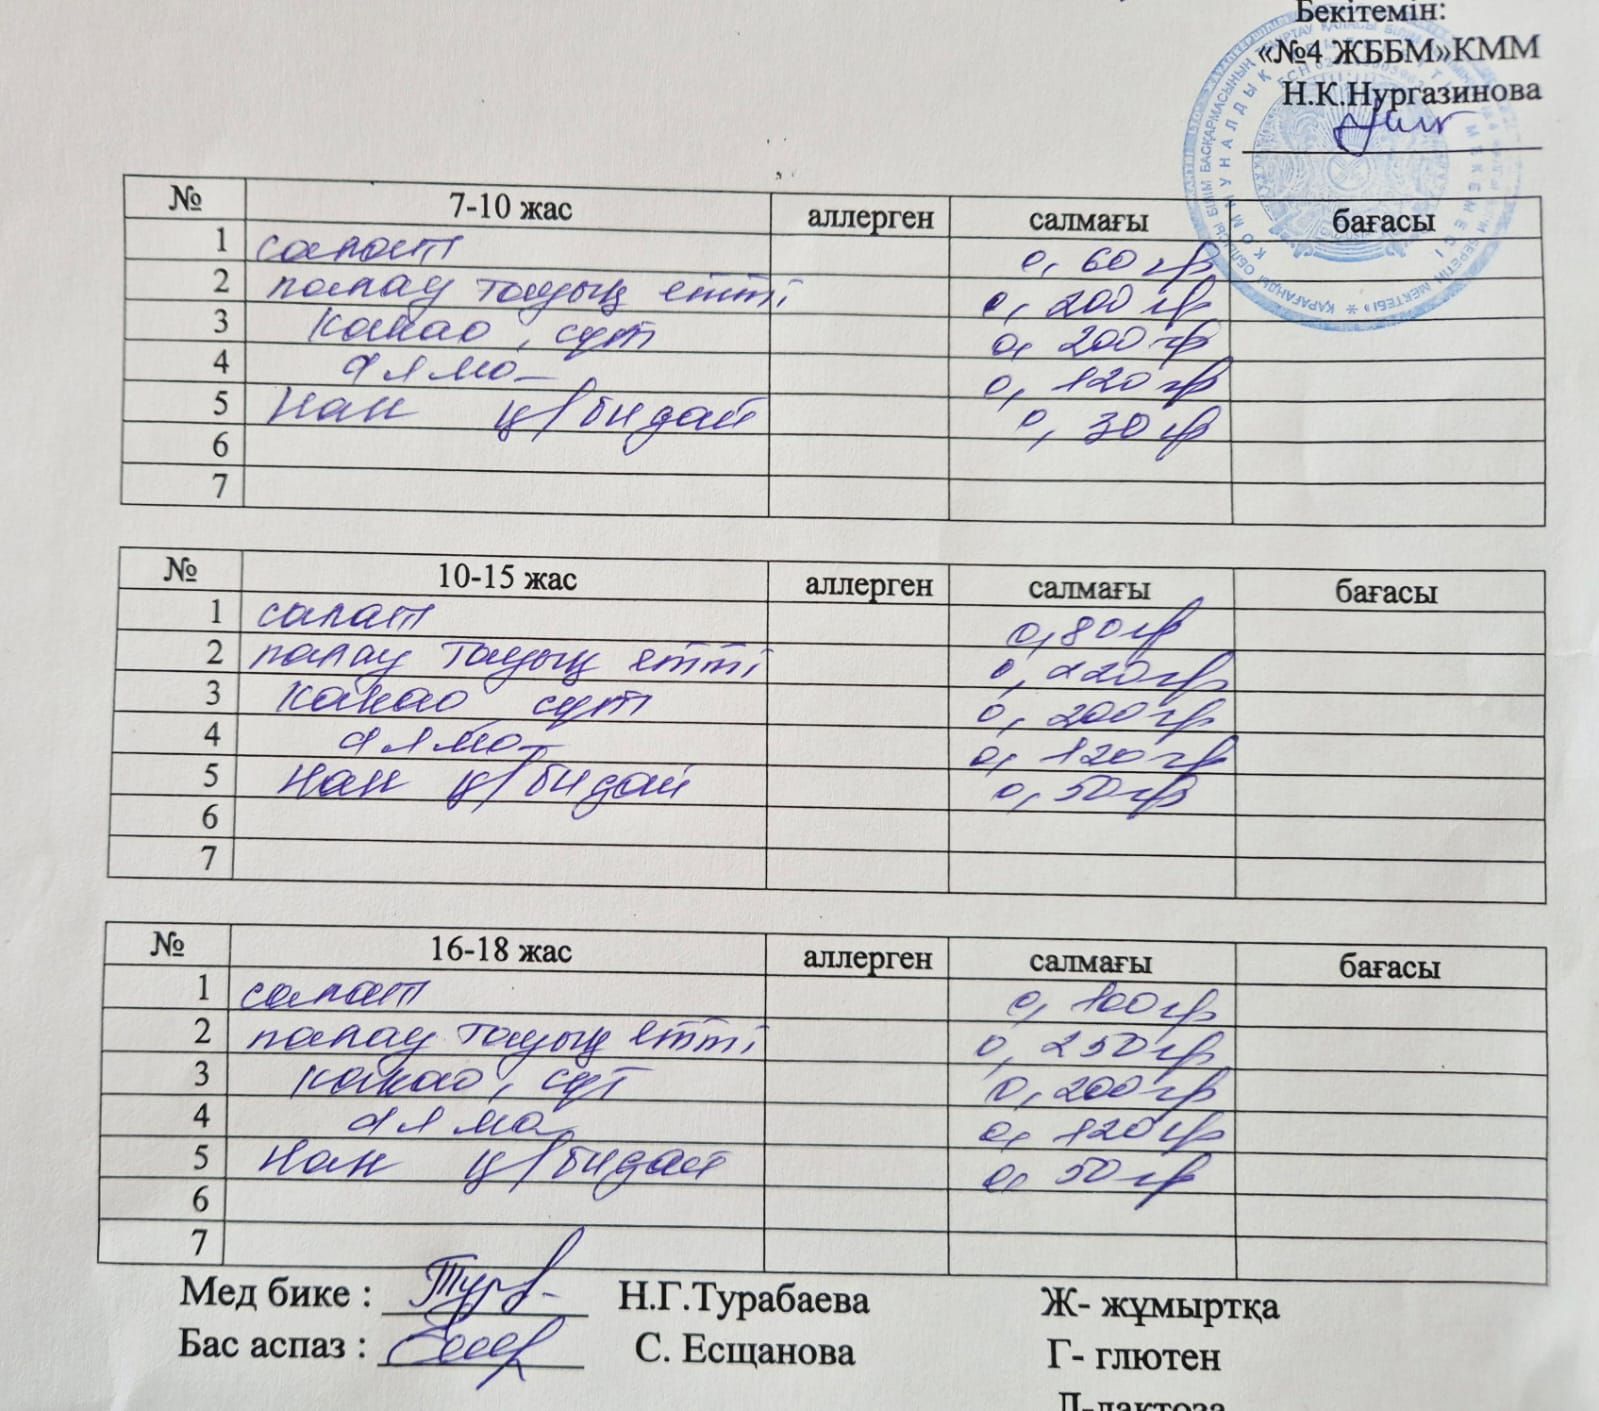 Бекітемін:
«№4 ЖББМ»КММ
Н.К.Нургазинова
№ 7-10 жас аллерген салмағы бағасы
1 салат 0, 60 гр
2 палау тауық етті 0, 200 гр
3 какао, сүт 0, 200 гр
4 алма 0, 120 гр
5 Нан қ/бидай 0, 30 гр
6
7
№ 10-15 жас аллерген салмағы бағасы
1 салат 0,80 гр
2 палау тауық етті 0, 220 гр
3 какао сүт 0, 200 гр
4 алма 0, 120 гр
5 Нан қ/бидай 0, 50 гр
6
7
№ 16-18 жас аллерген салмағы бағасы
1 салат 0, 100 гр
2 палау тауық етті 0, 250 гр
3 какао, сүт 0, 200 гр
4 алма 0, 120 гр
5 Нан қ/бидай 0, 50 гр
6
7
Мед бике : Н.Г.Турабаева Ж- жұмыртқа
Бас аспаз : С. Есщанова Г- глютен
Л-лактоза